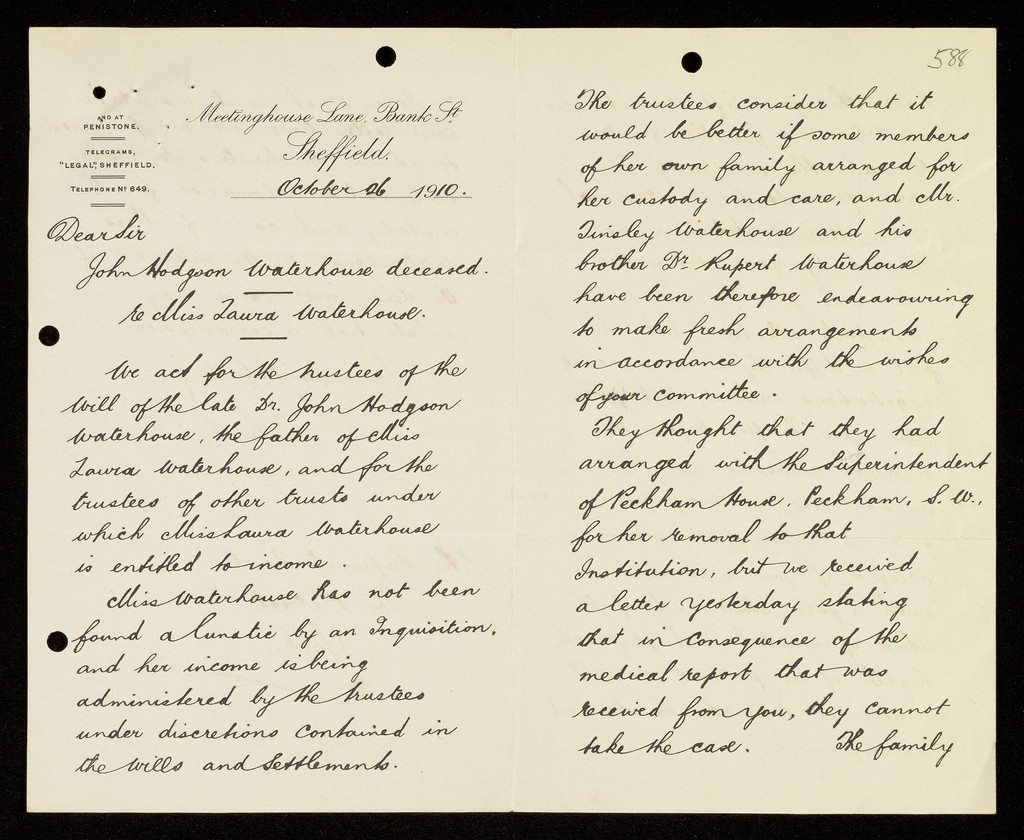 AND AT
PENISTONE.
TELEGRAMS,
"LEGAL", SHEFFIELD.
TELEPHONE Nº 649.
Meetinghouse Lane, Bank St.
Sheffield.
October 26 1910.
Dear Sir
John Hodgson Waterhouse deceased.
re Miss Laura Waterhouse.
We act for the trustees of the
Will of the late Dr. John Hodgson
Waterhouse, the father of Miss
Laura Waterhouse, and for the
trustees of other trusts under
which Miss Laura Waterhouse
is entitled to income.
Miss Waterhouse has not been
found a lunatic by an Inquisition,
and her income is being
administered by the trustees
under discretions contained in
the wills and settlements.
588
The trustees consider that it
would be better if some members
of her own family arranged for
her custody and care, and Mr.
Tinsley Waterhouse and his
brother Dr. Rupert Waterhouse
have been therefore endeavouring
to make fresh arrangements
in accordance with the wishes
of your committee.
They thought that they had
arranged with the Superintendent
of Peckham House, Peckham, S.W.,
for her removal to that
Institution, but we received
a letter yesterday stating
that in consequence of the
medical report that was
received from you, they cannot
take the case. The family